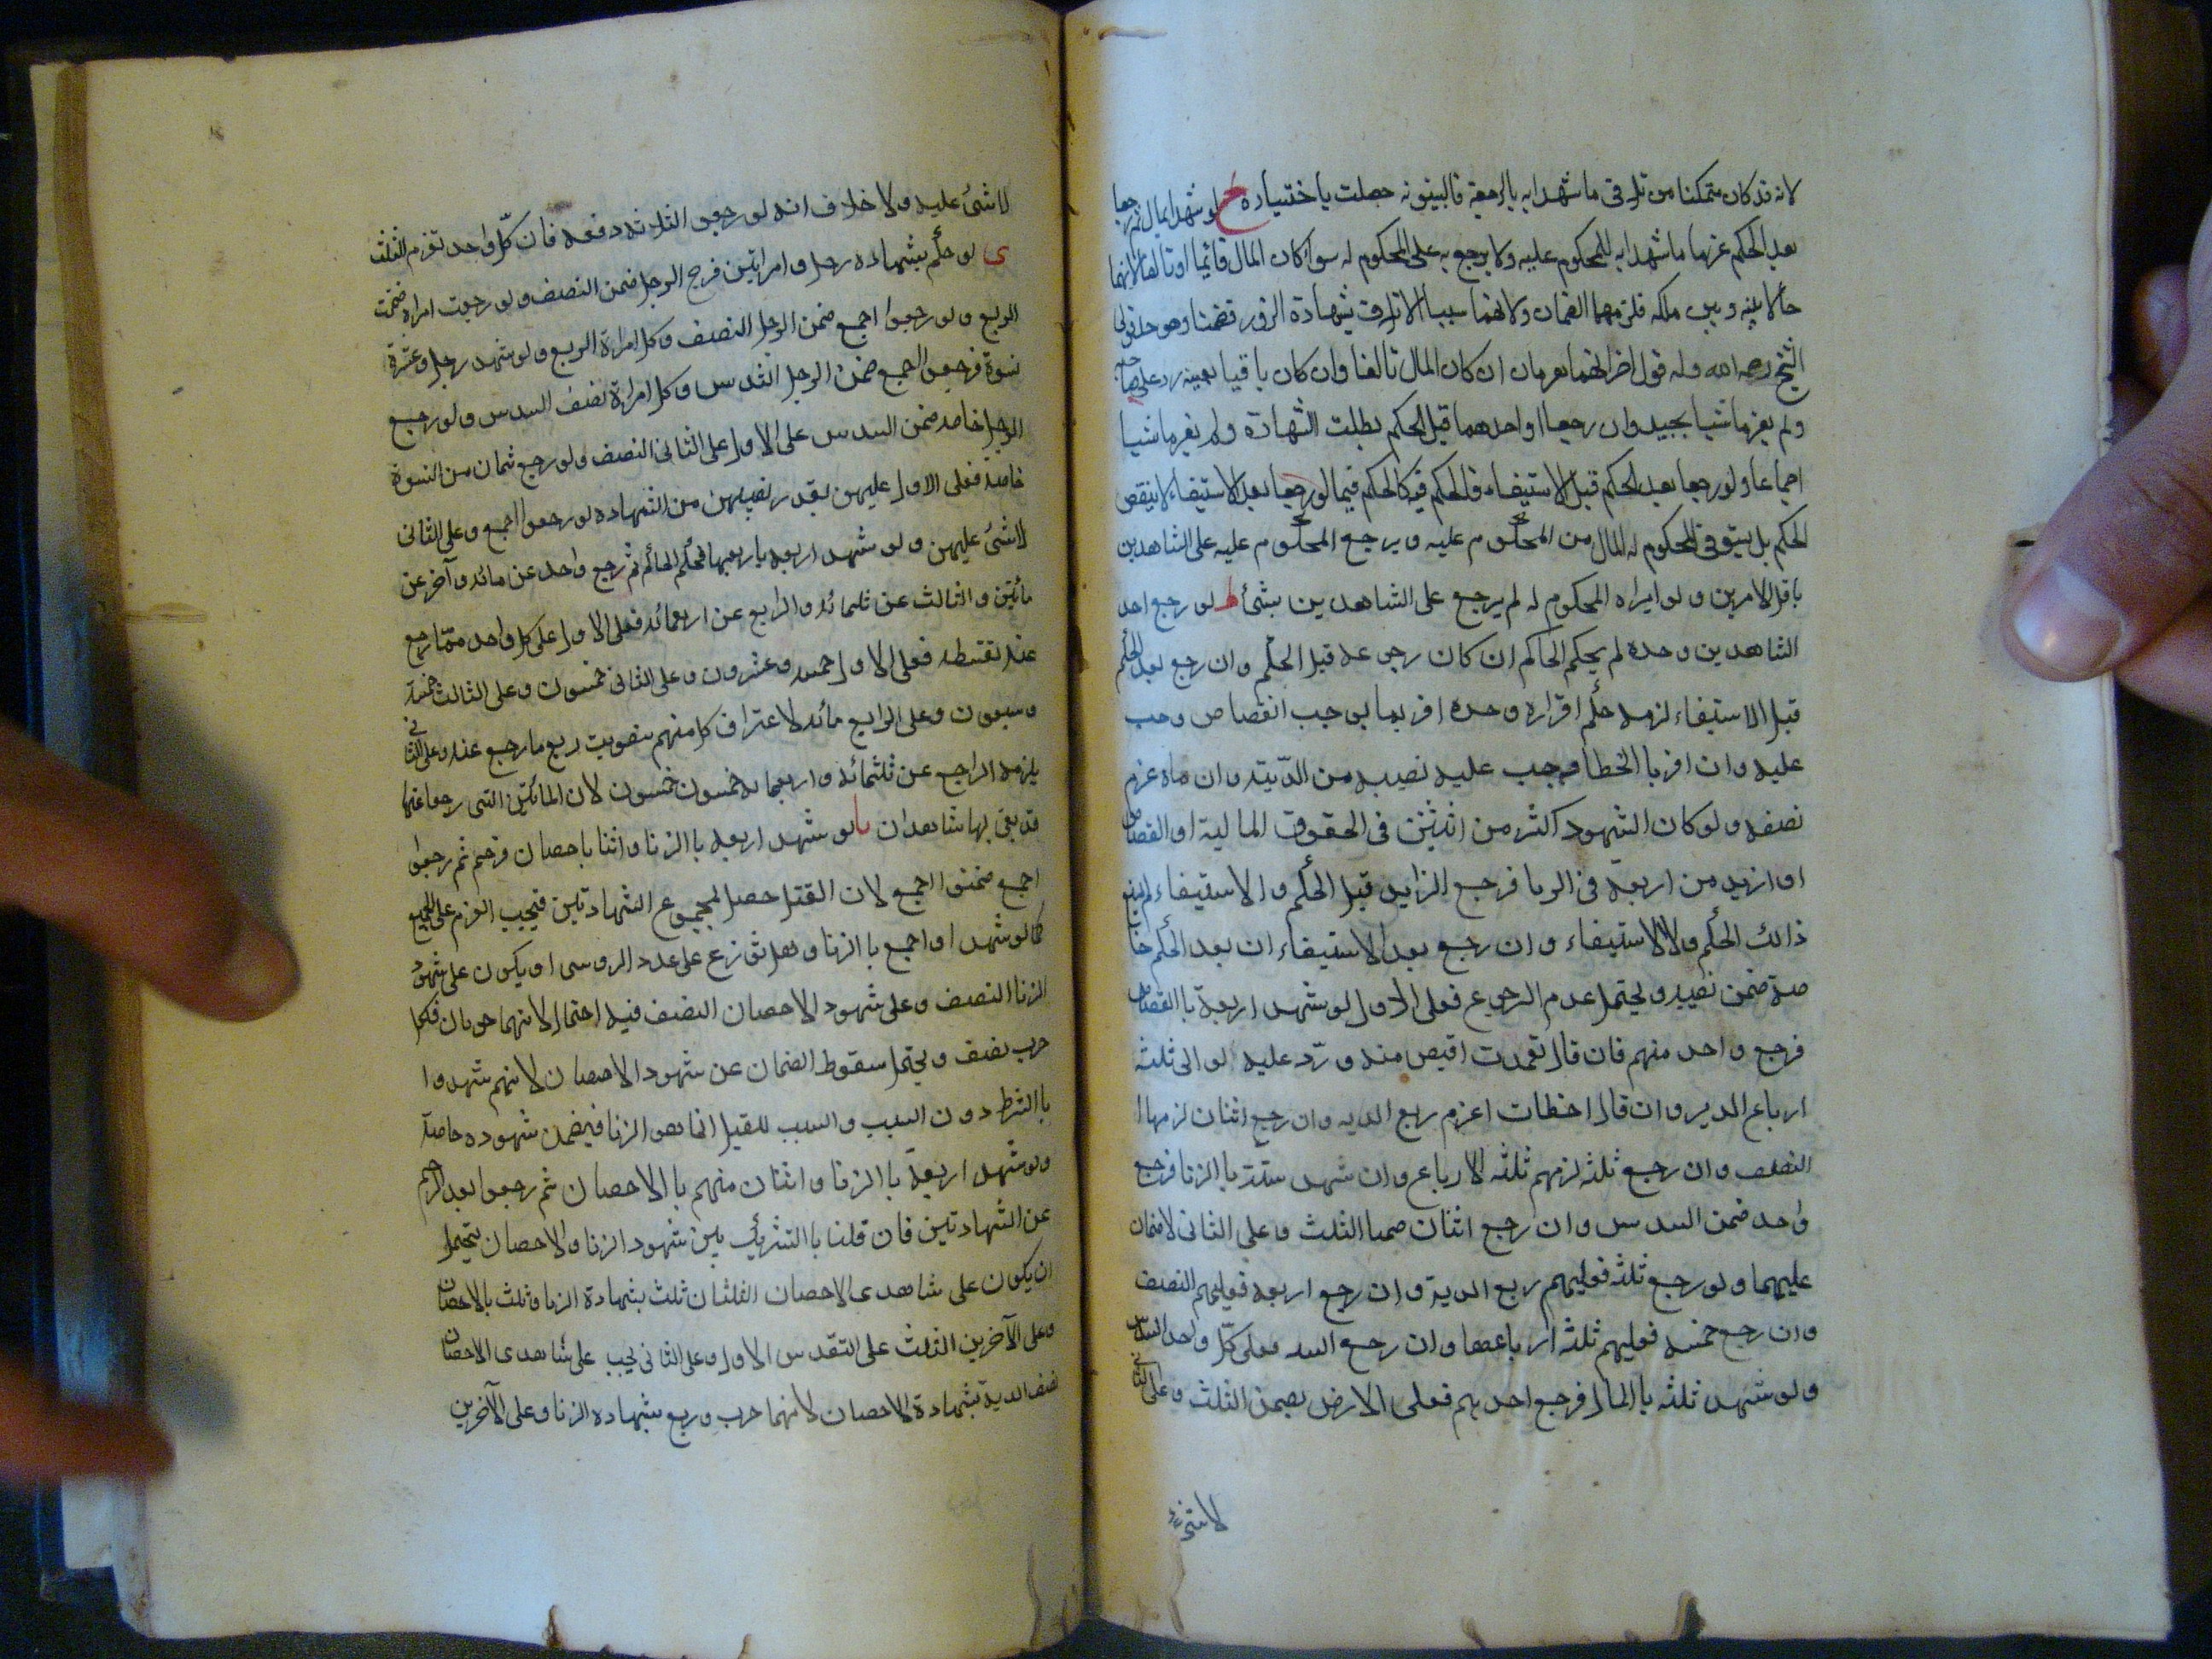 لانه قد كان متمكنا من تلافى ما شهدا به بالرجعة فالبينونه حصلت باختياره ح لو شهدا بمال ثم رجعا
بعد الحكم غرما ما شهدا به للمحكوم عليه ولا يرجع به على المحكوم له سواء كان المال قائما او تالفا لانهما
حالا بينه و بين ملكه فلزمهما الضمان ولانهما سببا الاتلاف بشهادة الزور فضمنا وهو احد قولى
الشيخ رحمه الله وله قول اخر انهما يغرمان ان كان المال تالفا وان كان باقيا بعينه رد على صاحبه
ولم يغرما شيا بجيد وان رجعا او احدهما قبل الحكم بطلت الشهادة ولم يغرما شيا
اجماعا ولو رجعا بعد الحكم قبل الاستيفاء فالحكم فيه كالحكم فيما لو رجعا بعد الاستيفاء لا ينقض
الحكم بل يستوفى المحكوم له المال من المحكوم عليه و يرجع المحكوم عليه على الشاهدين
باقل الامرين و لو ابراه المحكوم له لم يرجع على الشاهدين بشئ ط لو رجع احد
الشاهدين وحده لم يحكم الحاكم ان كان رجوعه قبل الحكم و ان رجع بعد الحكم
قبل الاستيفاء لزمه حكم اقراره وحده اقر بما يوجب القصاص وجب
عليه و ان اقر با الخطا وجب عليه نصيبه من الدية و ان ماه غرم
نصفه و لو كان الشهود اكثر من اثنين فى الحقوق المالية او القصاص
او ازيد من اربعة فى الزنا فرجع الزايد قبل الحكم و الاستيفاء لم يمنع
ذالك الحكم ولا الاستيفاء و ان رجع بعد الاستيفاء ان بعد الحكم خا
صة ضمن نصيبه و يحتمل عدم الرجوع فعلى الاول لو شهد اربعة با القصاص
فرجع واحد منهم فان قال تعمدت اقيص منه و رد عليه لوالى ثلثة
ارباع الديه و ان قال اخطات اغرم ربع الديه وان رجع اثنان لزمها ا
النصف و ان رجع ثلثه لزمهم ثلثه الارباع و ان شهد ستة با الزنا فرجع
واحد ضمن السدس و ان رجع اثنان ضمنا الثلث و على الثانى لا ضمان
عليهما و لو رجع ثلثه فعليهم ربع الدية و ان رجع اربعه فعليهم النصف
و ان رجع خمسه فعليهم ثلثه ارباعها و ان رجع السته فعلى كل واحد السدس
و لو شهد ثلثه با المال فرجع احدهم فعلى الارض يضمن الثلث و على الثانى
لا شئ
لا شئ عليه و لا خلاف انه لو رجع الثلاثه دفعه فان كل واحد تغرم الثلث
ى لو حكم بشهاده رجل و امراتين فرجع الرجل ضمن النصف و لو رجعت امراه ضمنت
الربع و لو رجعوا اجمع ضمن الرجل النصف و كل امراة الربع و لو شهد رجل و عشرة
نسوة فرجعوا اجمع ضمن الرجل السدس و كل امراة نصف السدس و لو رجع
الرجل خاصه ضمن السدس على الاول على الثانى النصف و لو رجع ثمان من النسوة
خاصة فعلى الاول عليهن بقدر نصيبهن من الشهاده لو رجعوا اجمع و على الثانى
لا شئ عليهن و لو شهد اربعه باربعمائه فحكم الحاكم ثم رجع واحد عن مائه و آخر عن
مائتين و الثالث عن ثلثمائه و الرابع عن اربعمائه فعلى الاول على كل واحد مما رجع
عنه بقسطه فعلى الاول خمسه و عشرون و على الثانى خمسون و على الثالث خمسة
و سبعون و على الرابع مائه لاعتراف كل منهم بتفويت ربع ما رجع عنه و على الثانى
يلزمه الراجع عن ثلثمائه و اربعمائه خمسون خمسون لان المائتين التى رجعا عنها
قد بقى بها شاهدان يا لو شهد اربعه با الزنا و اثنا باحصان فرجم ثم رجعوا
اجمع ضمنوا اجمع لان القتل حصل بمجموع الشهادتين فيجب الغرم على الجميع
كما لو شهدوا اجمع با الزنا و هل توزع على عدد الروس او يكون على شهود
الزنا النصف و على شهود الاحصان النصف فيه احتمال لانهما حزبان فلكل
حزب نصف و يحتمل سقوط الضمان عن شهود الاحصان لانهم شهدوا
با الشرط دون السبب و السبب للقتل انما هو الزنا فيضمن شهوده خاصة
ولو شهد اربعة با الزنا و اثنان منهم با الاحصان ثم رجعوا بعد الرجم
عن الشهادتين فان قلنا با التشريك بين شهود الزنا و الاحصان يحتمل
ان يكون على شاهدى الاحصان الثلثان ثلث بشهادة الزنا و ثلث بالاحصان
و على الآخرين الثلث على التقدس الاول و على الثانى يجب على شاهدى الاحصان
نصف الدية بشهادة الاحصان لانهما حزب و ربع بشهاده الزنا و على الآخرين